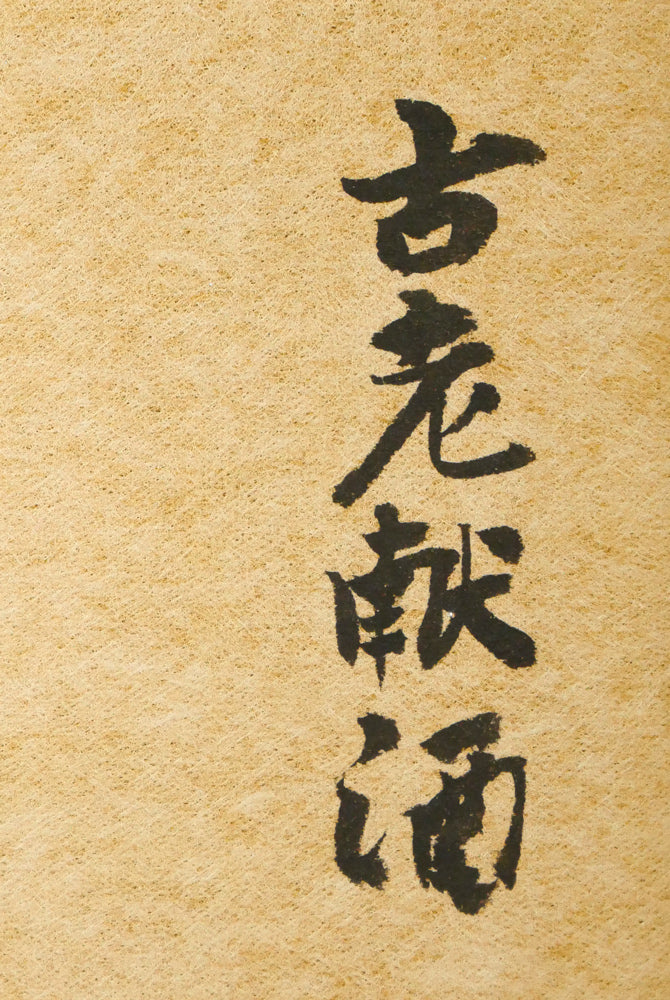 古老献酒